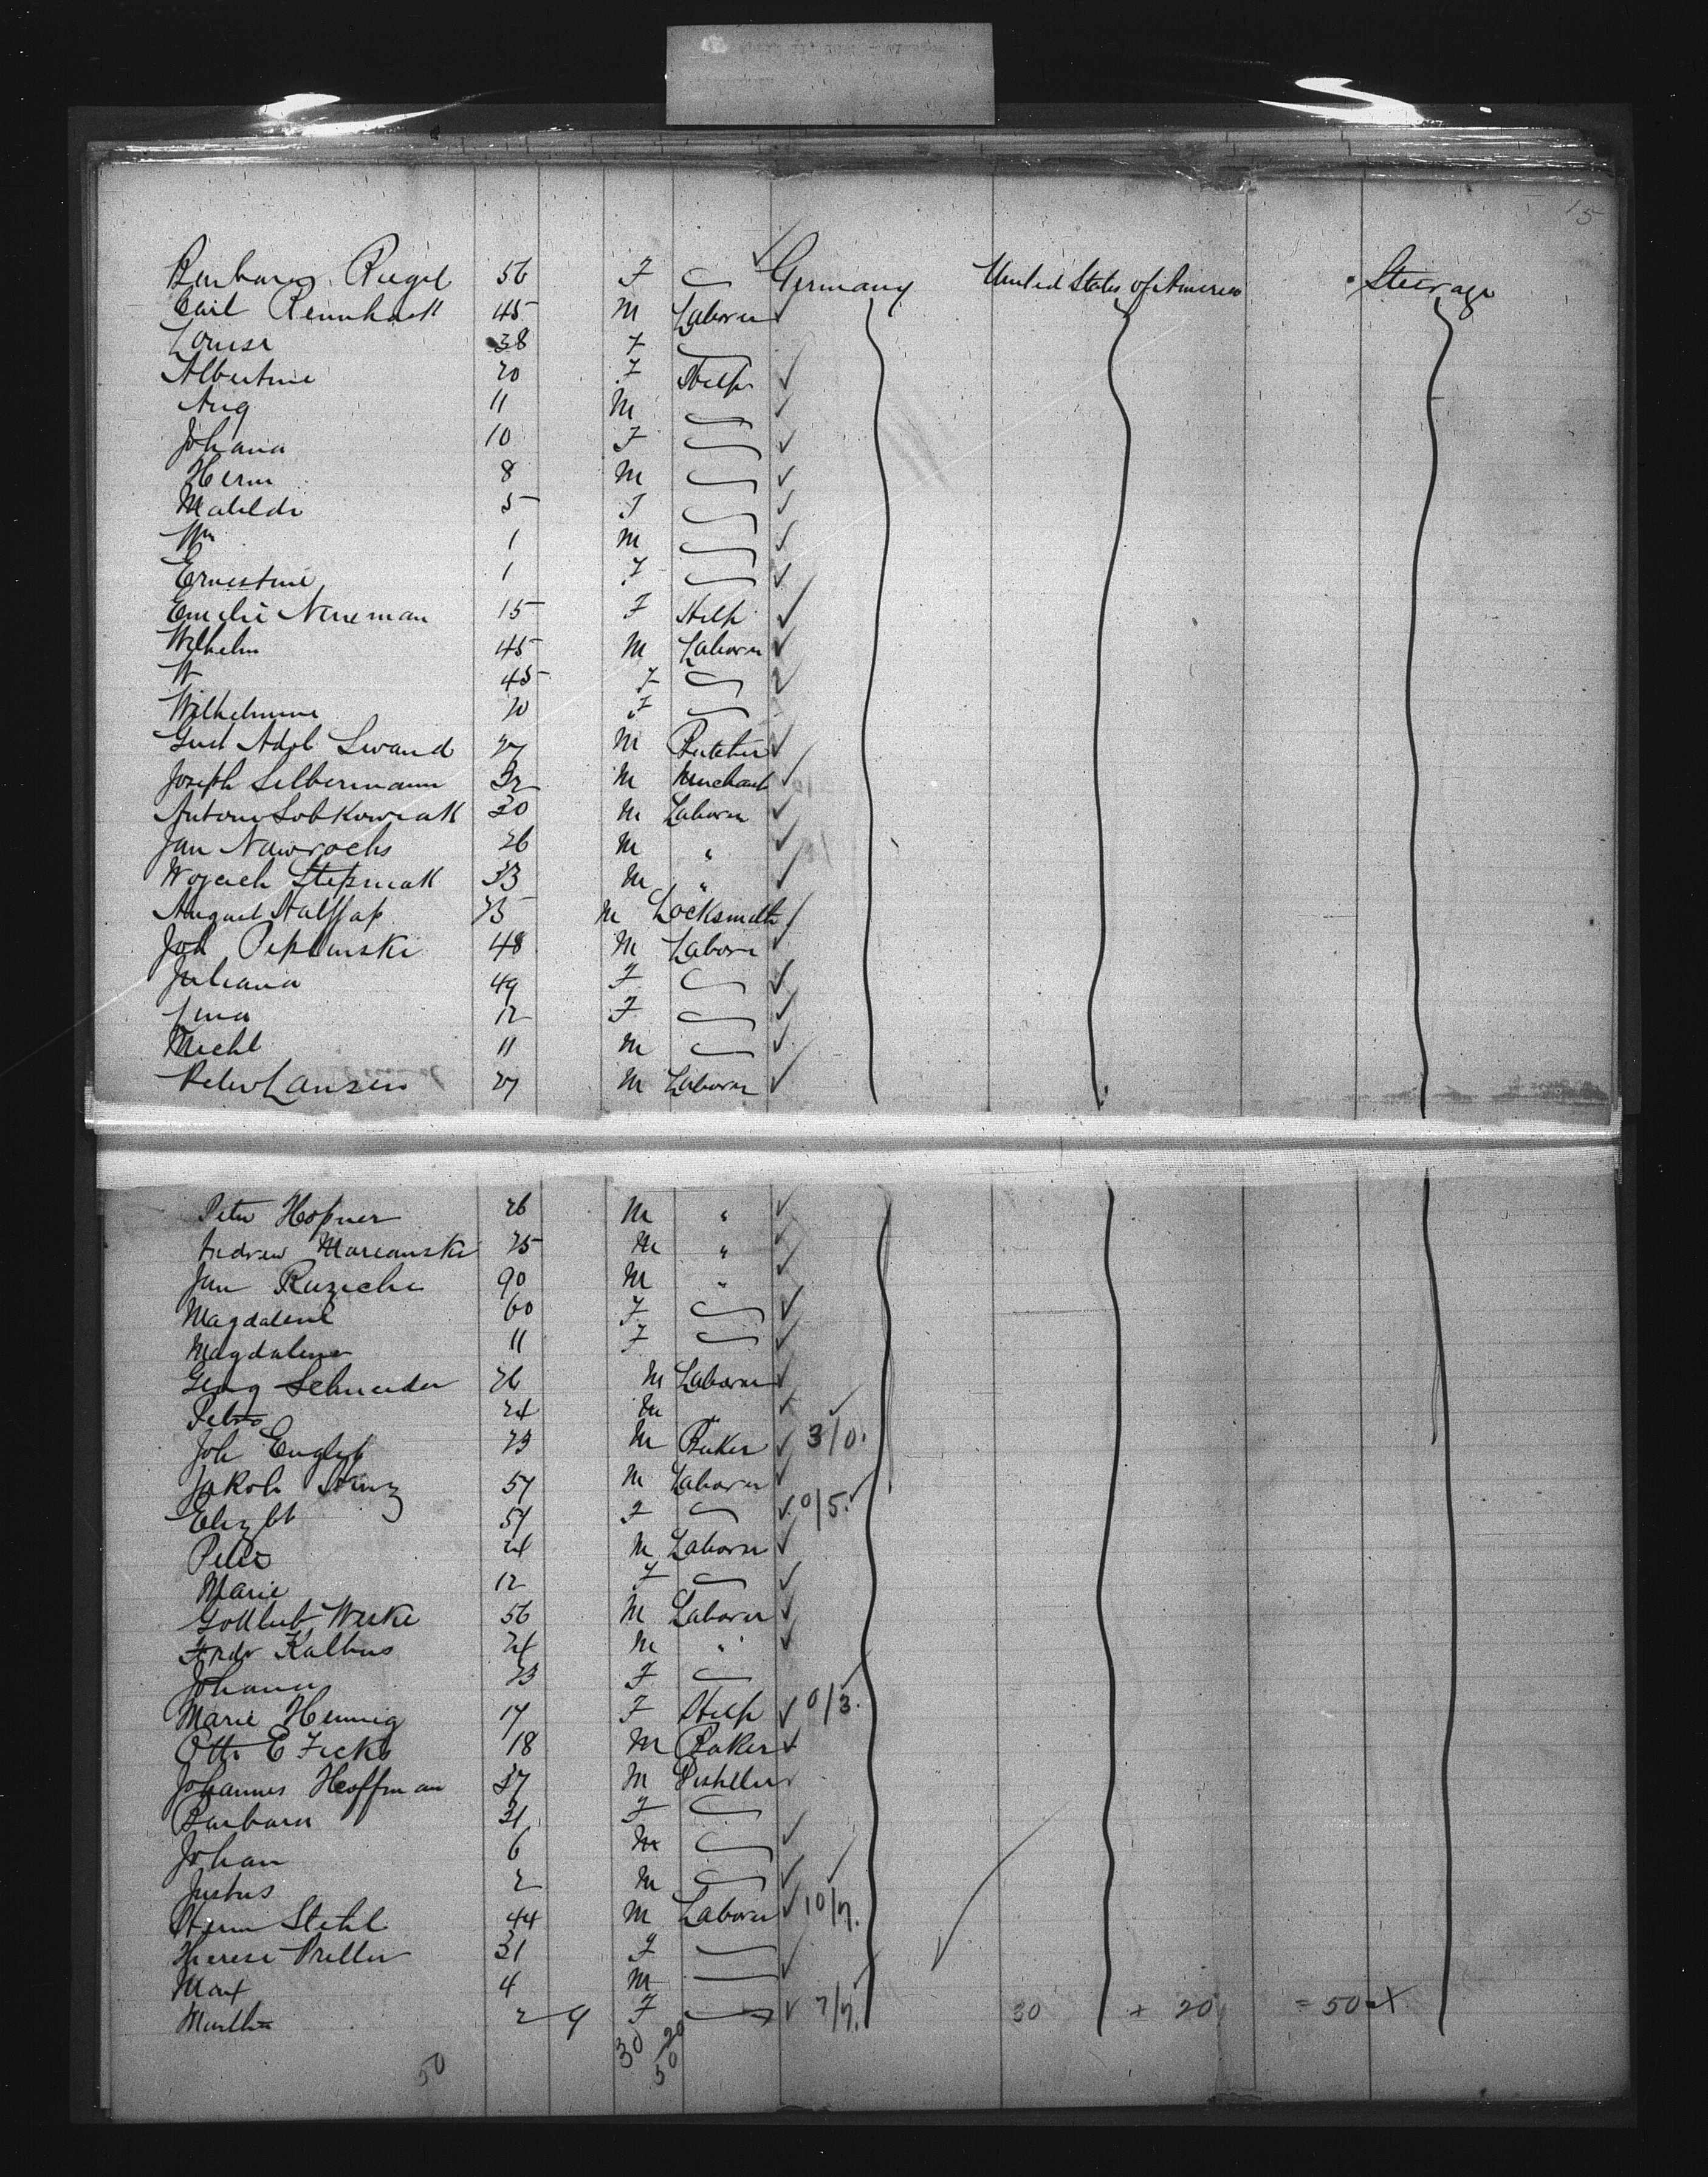 15
Barbara Riegel 56 F Germany United States of America Steerage
Carl Rennhack 45 M Laborer
Louise 38 F
Albertine 20 F Help
Aug 11 M
Johana 10 F
Herm 8 M
Matilde 5 F
Wm 1 M
Ernestine 1 F
Emelie Neneman 15 F Help
Wilhelm 45 M Laborer
W 45 F
Wilhelmine 20 F
Gust Adol Lwand 27 M Butcher
Joseph Silbermann 32 M Merchant
Antoni Sobkowiak 30 M Laborer
Jan Nawrochs 26 M "
Wojciech Stepniak 33 M "
August 25 M Locksmith
Joh Peplinski 48 M Laborer
Juliana 49 F
Lina 12 F
Michl 11 M
Peter Lansen 27 M Laborer
Peter Hopner 26 M "
Andrew Marcanski 25 M "
Jan Ruzicke 90 M "
Magdalene 60 F
Magdalena 11 F
Georg Schneider 26 M Laborer
Petro 24 M "
Joh 23 M Baker 3/0.
Jakob 57 M Laborer
Elizbt 54 F 0/5.
Peter 24 M Laborer
Marie 12 F
Gottlieb Weske 56 M Laborer
Andr Kalbus 24 M "
Johanna 23 F
Marie Hennig 17 F Help 0/3.
Otto E Ficks 18 M Baker
Johannes Hoffman 37 M Distiller
Barbara 31 F
Johan 6 M
Justus 2 M
Herm Stehl 44 M Laborer 10/7.
Therese Preller 31 F
Max 4 M
Martha 2 9 F 7/7. 30 + 20 = 50
50 30 20
50